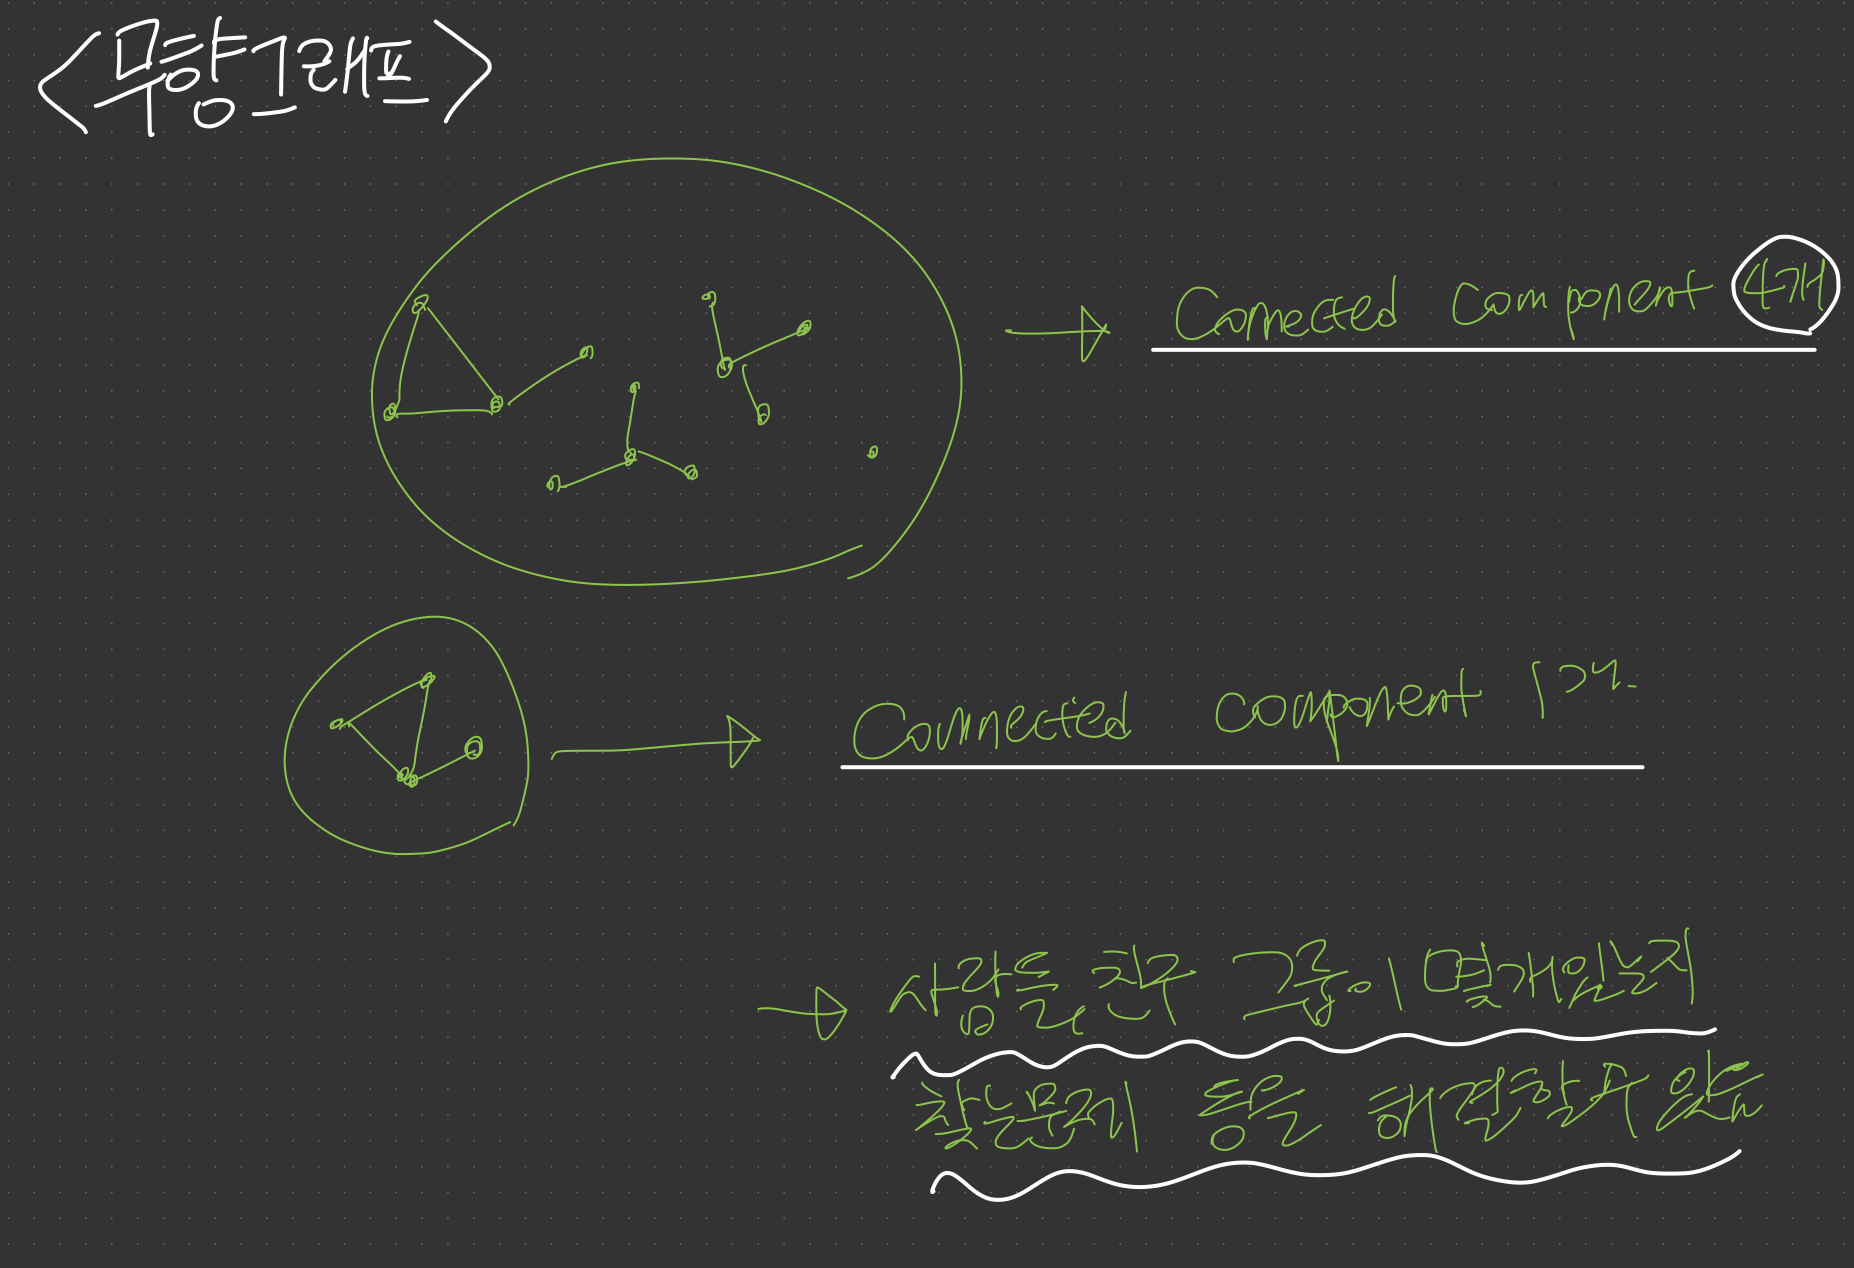 <무향그래프>
Connected Component 4개
Connected component 1개.
사람들 친구 그룹이 몇개있는지
찾는문제 등을 해결할수 있음